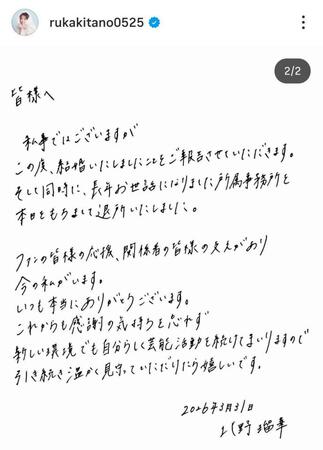 rukakitano0525
2/2
皆様へ
私事ではございますが
この度、結婚いたしましたことをご報告させていただきます。
そして同時に、長年お世話になりました所属事務所を
本日をもちまして退所いたしました。
ファンの皆様の応援、関係者の皆様の支えがあり
今の私がいます。
いつも本当にありがとうございます。
これからも感謝の気持ちを忘れず
新しい環境でも自分らしく芸能活動を続けてまいりますので
引き続き温かく見守っていただけたら嬉しいです。
2026年3月31日
北野瑠華